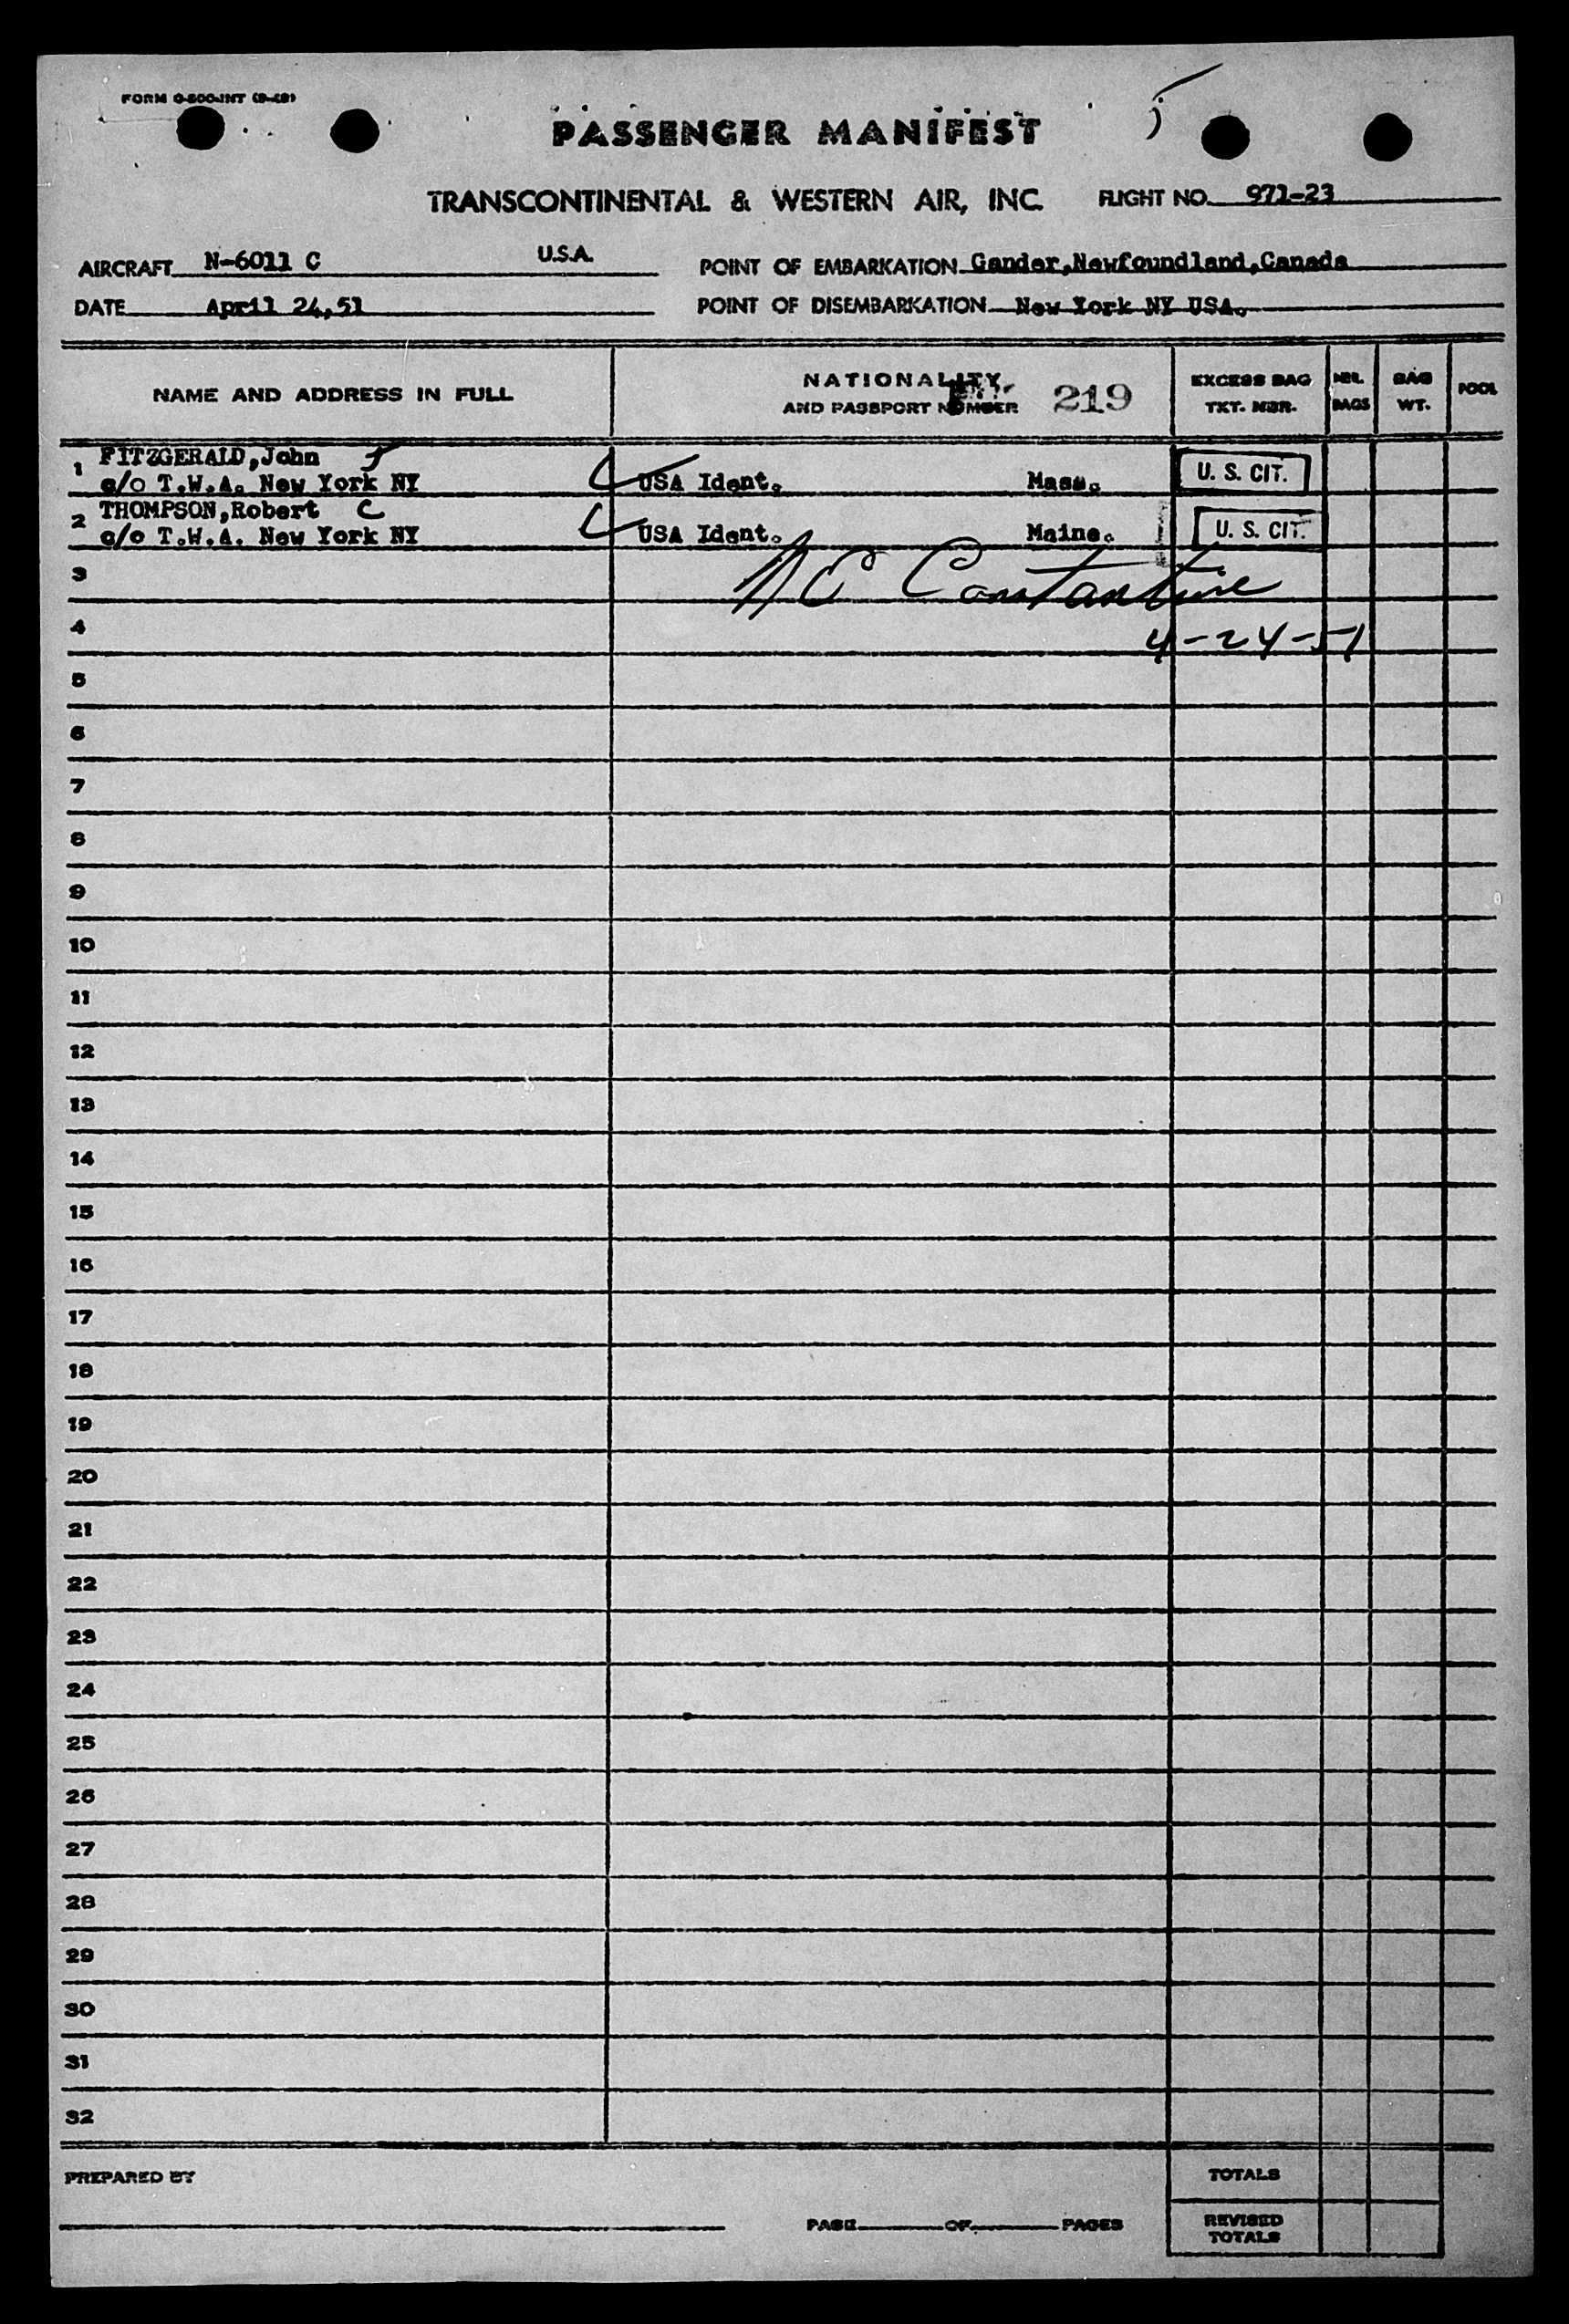 FORM O-500-INT (9-48)
PASSENGER MANIFEST
TRANSCONTINENTAL & WESTERN AIR, INC. FLIGHT NO. 971-23
AIRCRAFT N-6011 C U.S.A. POINT OF EMBARKATION Gander,Newfoundland,Canada
DATE April 24,51 POINT OF DISEMBARKATION New York NY USA.
NAME AND ADDRESS IN FULL NATIONALITY AND PASSPORT NUMBER 219 EXCESS BAG TKT. NBR. NBR. BAGS BAG WT. POOL
1 FITZGERALD,John J
c/o T.W.A. New York NY USA Ident. Mass. U. S. CIT.
2 THOMPSON,Robert C
c/o T.W.A. New York NY USA Ident. Maine. U. S. CIT.
3 Constantine
4 4-24-51
5
6
7
8
9
10
11
12
13
14
15
16
17
18
19
20
21
22
23
24
25
26
27
28
29
30
31
32
PREPARED BY TOTALS
PAGE OF PAGES REVISED TOTALS